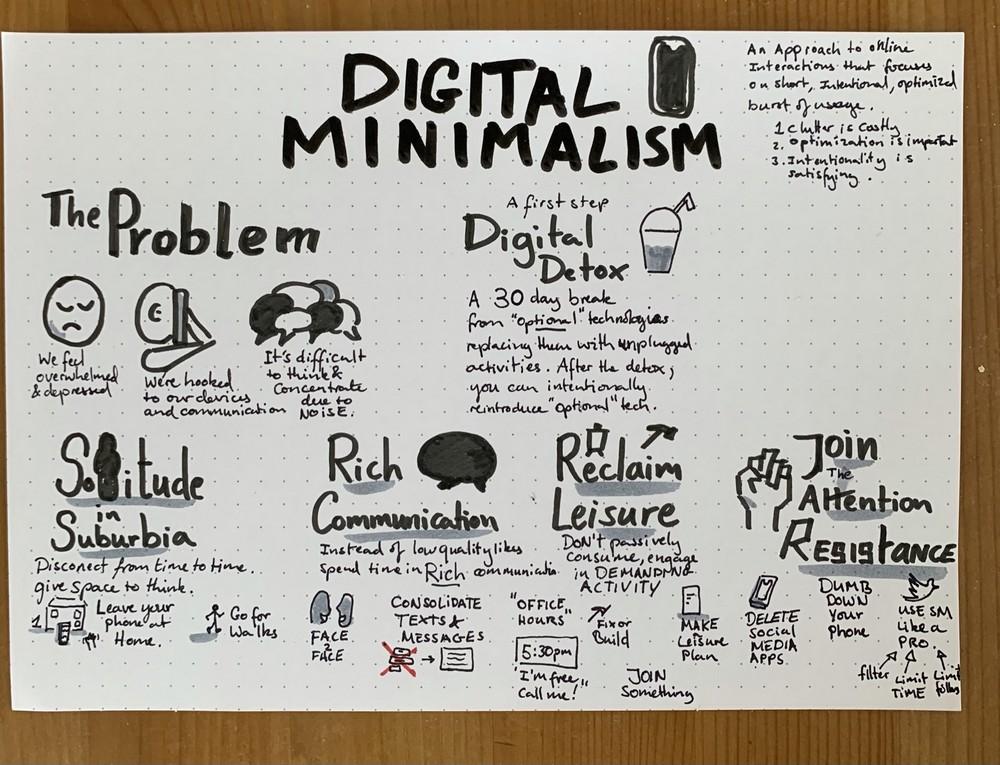 DIGITAL
MINIMALISM
An Approach to online
Interactions that focuses
on short, Intentional, optimized
burst of usage.
1 clutter is costly
2. optimization is important
3. Intentionality is
satisfying.
The Problem
We feel
overwhelmed
& depressed
We're hooked
to our devices
and communication
It's difficult
to think &
Concentrate
due to
NOISE.
A first step
Digital
Detox
A 30 day break
from "optional" technologies
replacing them with unplugged
activities. After the detox,
you can intentionally
reintroduce "optional" tech.
Solitude
in
Suburbia
Disconect from time to time.
give space to think.
1
Leave your
phone at
Home.
Go for
Walks
Rich
Communication
Instead of low quality likes
spend time in Rich communicatio
FACE
2
FACE
CONSOLIDATE
TEXTS &
MESSAGES
"OFFICE
HOURS"
5:30pm
"I'm free,
Call me!"
Reclaim
Leisure
DON't passively
Consume, engage
in DEMANDING
ACTIVITY
Fix or
Build
MAKE
Leisure
Plan
JOIN
Something
Join
The
Attention
RESISTANCE
DELETE
Social
MEDIA
APPS.
DUMB
DOWN
Your
phone
USE SM
Like a
PRO.
filter
Limit
TIME
Limit